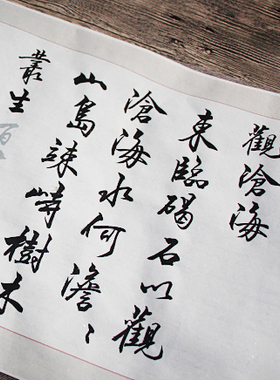 觀滄海
東臨碣石以觀
滄海水何澹〻
山島竦峙樹木
叢生